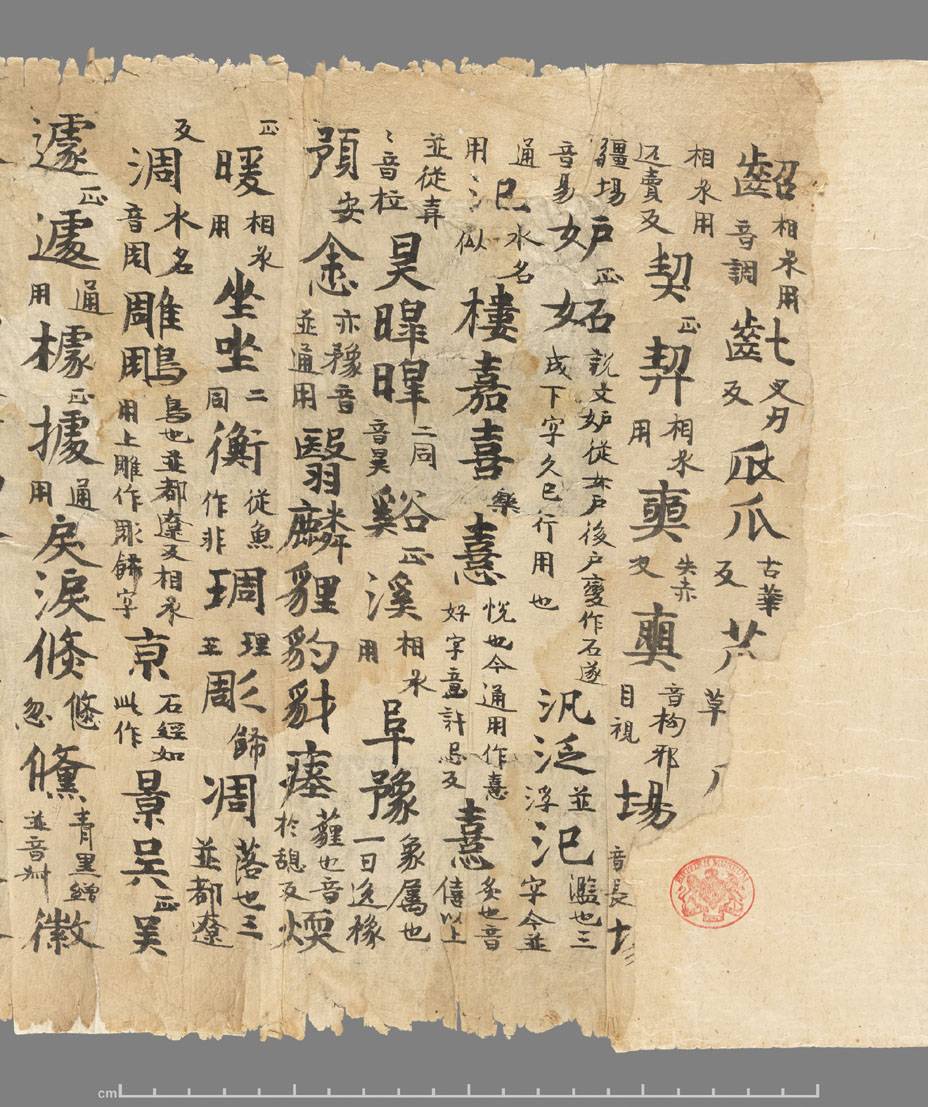 齠相承用音調齔叉刃反瓜瓜古華反草
相承用还賣反契正㓞相承用奭失赤反奭音拘邪目視場音長
疆埸音易妒正妬説文妒從女户後户變作石遂成下字久已行用也汎泛並浮氾濫也三字今並
通用汜水名似樓嘉喜樂憙悦也今通用作憙好字音許忌反熹炙也音僖以上
並從壴々音柱昊暭暤二同音昊谿正溪相承用阜豫象属也一曰逸橡
預安悆亦豫音並通用翳麟貍豹豺瘞薶也音於䅿反煗
正暖相承用坐㘴二同衡從魚作非琱理玉彫飾凋落也三並都遼
反淍水名音周雕鵰鳥也並都遼反相承用上雕作彫飾字京石經如此作景吳正吴
遽正遽通用據正據通用戾淚倏倏忽儵青黑繒並音叔徽